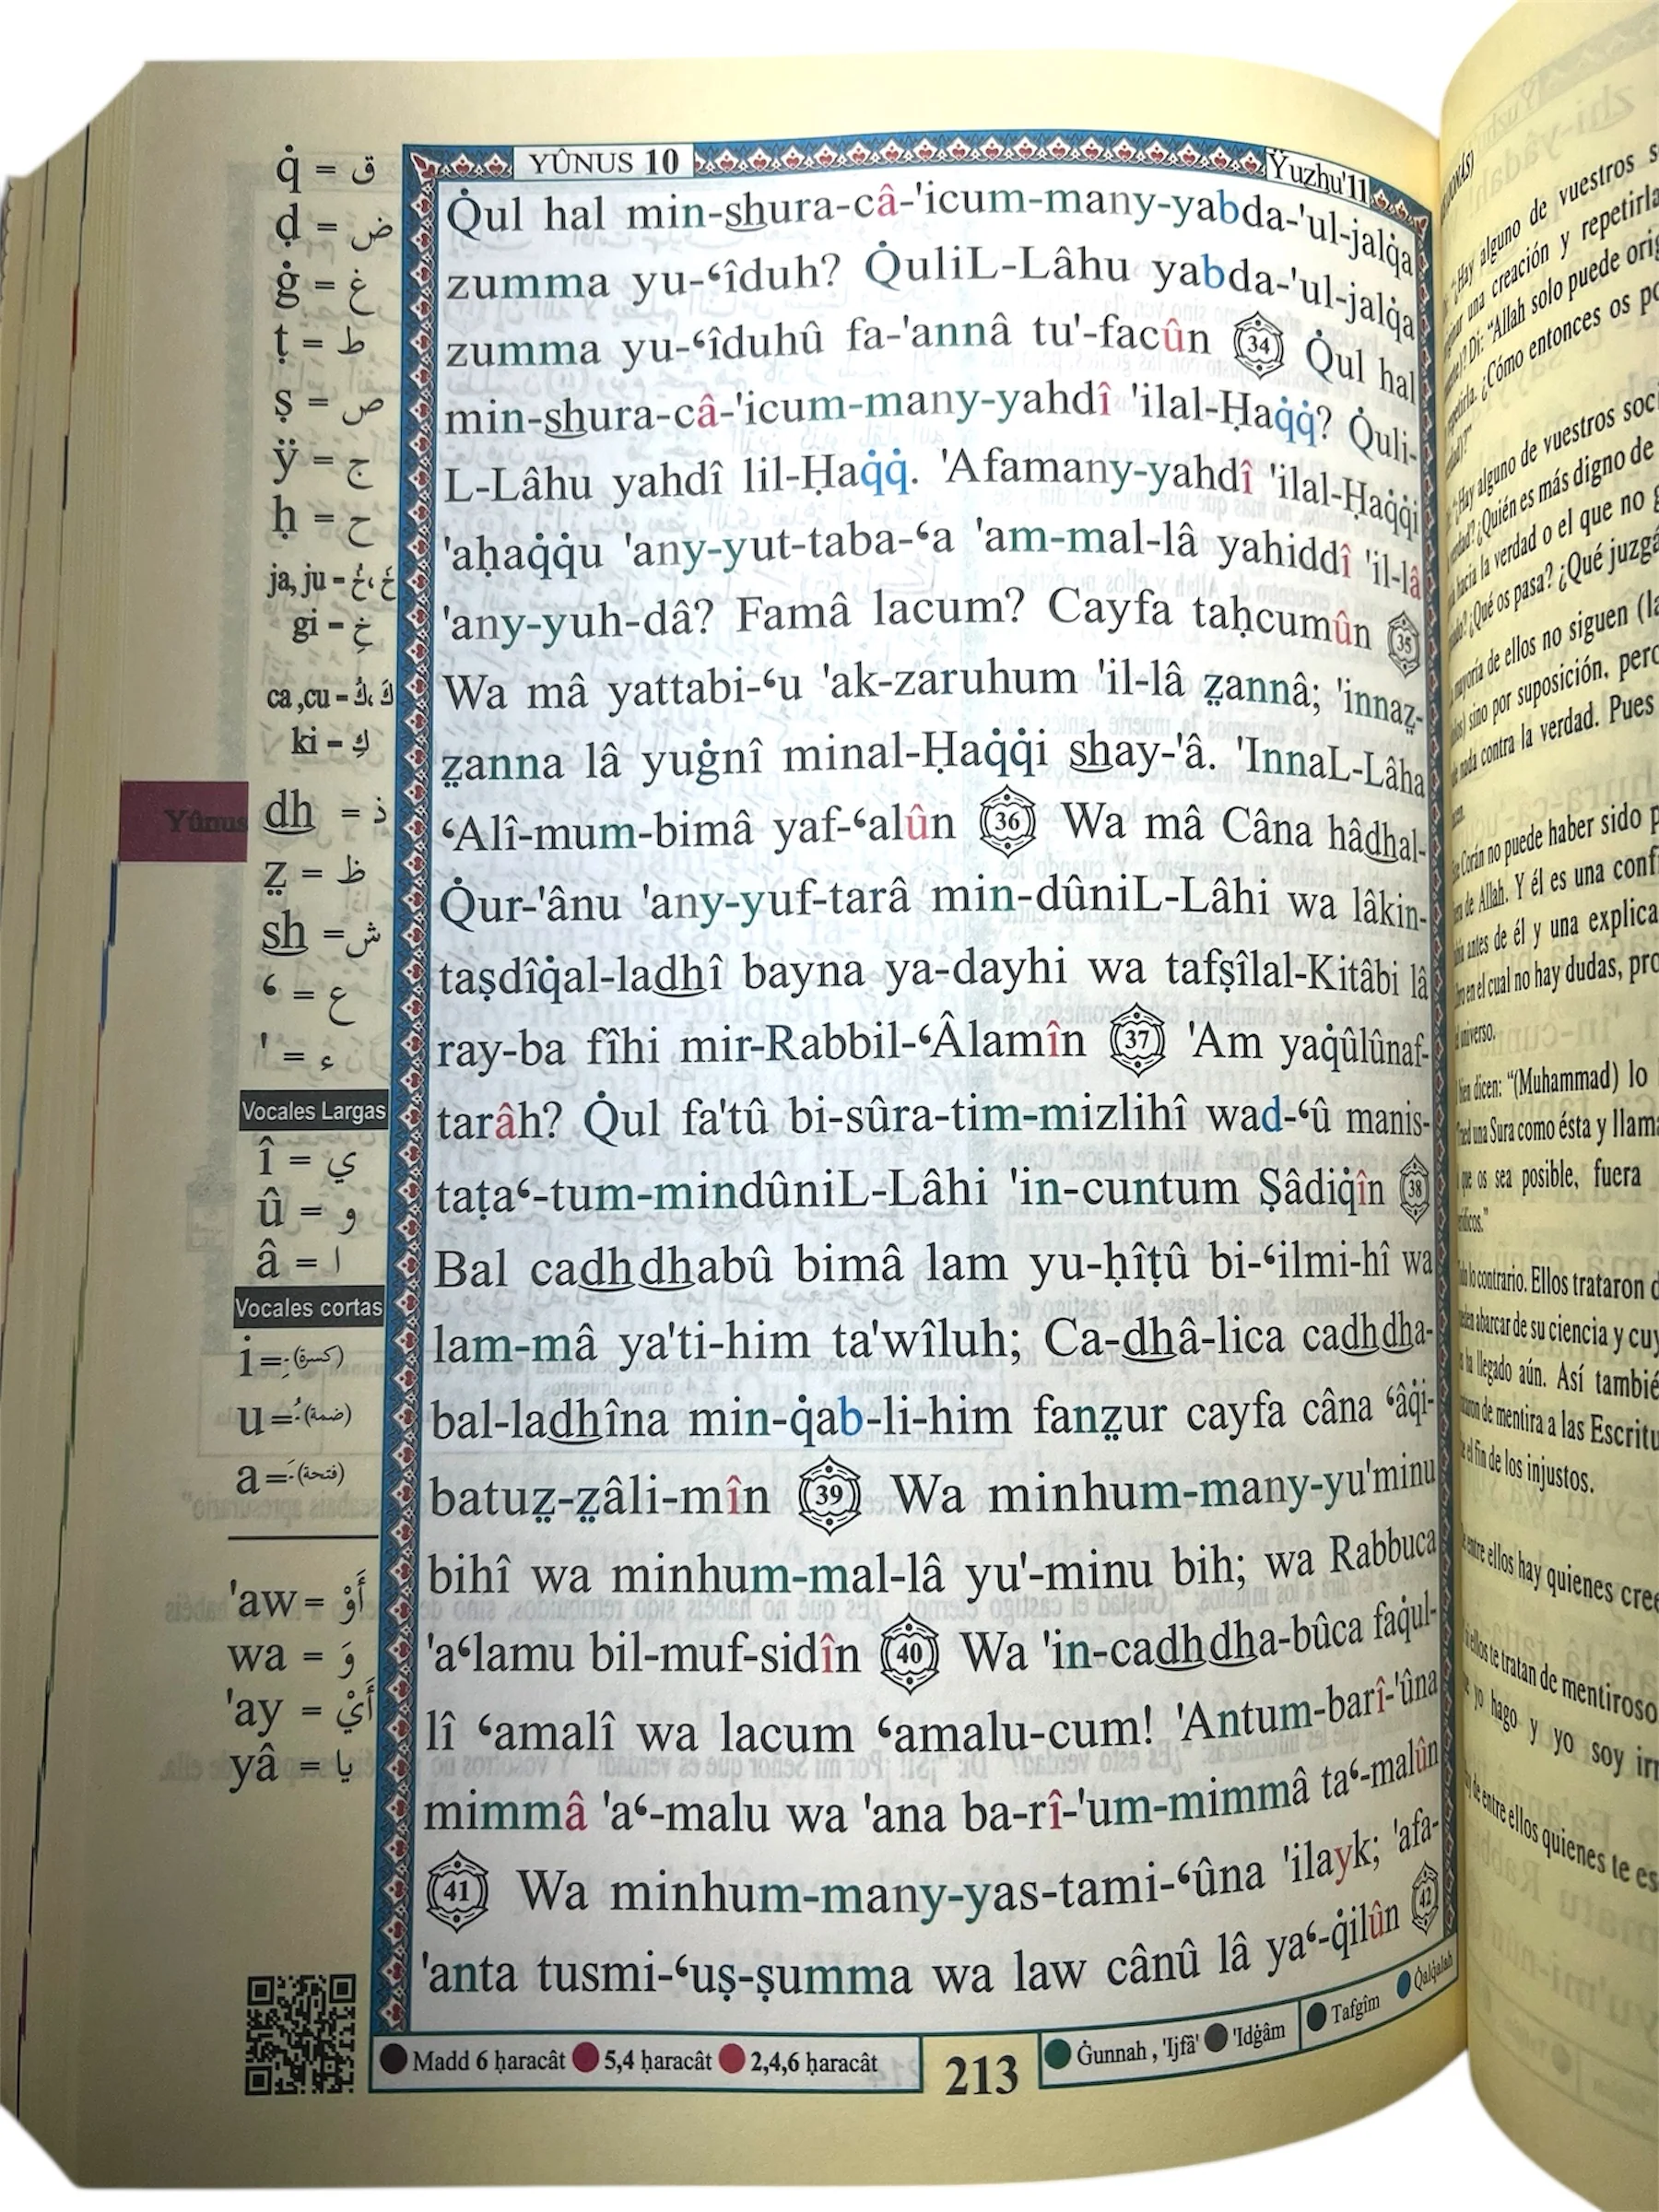 YÛNUS 10
Ÿuzhu'11
q̇ = ق
ḍ = ض
ġ = غ
ṭ = ط
ṣ = ص
ÿ = ج
ḥ = ح
ja, ju - خَ، خُ
gi - خِ
ca ,cu - كَ، كُ
ki - كِ
dh = ذ
ẓ = ظ
sh = ش
ʻ = ع
' = ء
Vocales Largas
î = ي
û = و
â = ا
Vocales cortas
i = ـِ (كسرة)
u = ـُ (ضمة)
a = ـَ (فتحة)
'aw = أَوْ
wa = وَ
'ay = أَيْ
yâ = يا
Yûnus
Q̇ul hal min-shura-câ-'icum-many-yabda-'ul-jalq̇a
zumma yu-ʻîduh? Q̇uliL-Lâhu yabda-'ul-jalq̇a
zumma yu-ʻîduhû fa-'annâ tu'-facûn 34 Q̇ul hal
min-shura-câ-'icum-many-yahdî 'ilal-Ḥaq̇q̇? Q̇uli-
L-Lâhu yahdî lil-Ḥaq̇q̇. 'Afamany-yahdî 'ilal-Ḥaq̇q̇i
'aḥaq̇q̇u 'any-yut-taba-ʻa 'am-mal-lâ yahiddî 'il-lâ
'any-yuh-dâ? Famâ lacum? Cayfa taḥcumûn 35
Wa mâ yattabi-ʻu 'ak-zaruhum 'il-lâ ẓannâ; 'innaẓ-
ẓanna lâ yuġnî minal-Ḥaq̇q̇i shay-'â. 'InnaL-Lâha
ʻAlî-mum-bimâ yaf-ʻalûn 36 Wa mâ Câna hâdhal-
Q̇ur-'ânu 'any-yuf-tarâ min-dûniL-Lâhi wa lâkin-
taṣdîq̇al-ladhî bayna ya-dayhi wa tafṣîlal-Kitâbi lâ
ray-ba fîhi mir-Rabbil-ʻÂlamîn 37 'Am yaq̇ûlûnaf-
tarâh? Q̇ul fa'tû bi-sûra-tim-mizlihî wad-ʻû manis-
taṭaʻ-tum-mindûniL-Lâhi 'in-cuntum Ṣâdiq̇în 38
Bal cadhdhabû bimâ lam yu-ḥîṭû bi-ʻilmi-hî wa
lam-mâ ya'ti-him ta'wîluh; Ca-dhâ-lica cadhdha-
bal-ladhîna min-q̇ab-li-him fanẓur cayfa câna ʻâq̇i-
batuẓ-ẓâli-mîn 39 Wa minhum-many-yu'minu
bihî wa minhum-mal-lâ yu'-minu bih; wa Rabbuca
'aʻlamu bil-muf-sidîn 40 Wa 'in-cadhdha-bûca faq̇ul-
lî ʻamalî wa lacum ʻamalu-cum! 'Antum-barî-'ûna
mimmâ 'aʻ-malu wa 'ana ba-rî-'um-mimmâ taʻ-malûn
41 Wa minhum-many-yas-tami-ʻûna 'ilayk; 'afa-
'anta tusmi-ʻuṣ-ṣumma wa law cânû lâ yaʻ-q̇ilûn 42
Madd 6 ḥaracât 5,4 ḥaracât 2,4,6 ḥaracât
213
Ġunnah , 'Ijfâ' 'Idġâm Tafgîm Q̇alq̇alah
alguno de vuestros
una creación y repetirla
Di: “Allah solo puede
¿Cómo entonces os
alguno de vuestros
¿Quién es más digno de
hacia la verdad o el que no
¿Qué os pasa? ¿Qué
de ellos no siguen
sino por suposición,
nada contra la verdad. Pues
Corán no puede haber sido
de Allah. Y él es una
antes de él y una
en el cual no hay dudas,
universo.
dicen: “(Muhammad) lo
una Sura como ésta y
que os sea posible, fuera
contrario. Ellos trataron
abarcar de su ciencia y
ha llegado aún. Así
de mentira a las
el fin de los injustos.
entre ellos hay quienes
ellos te tratan de mentiroso
yo hago y yo soy
de entre ellos quienes te